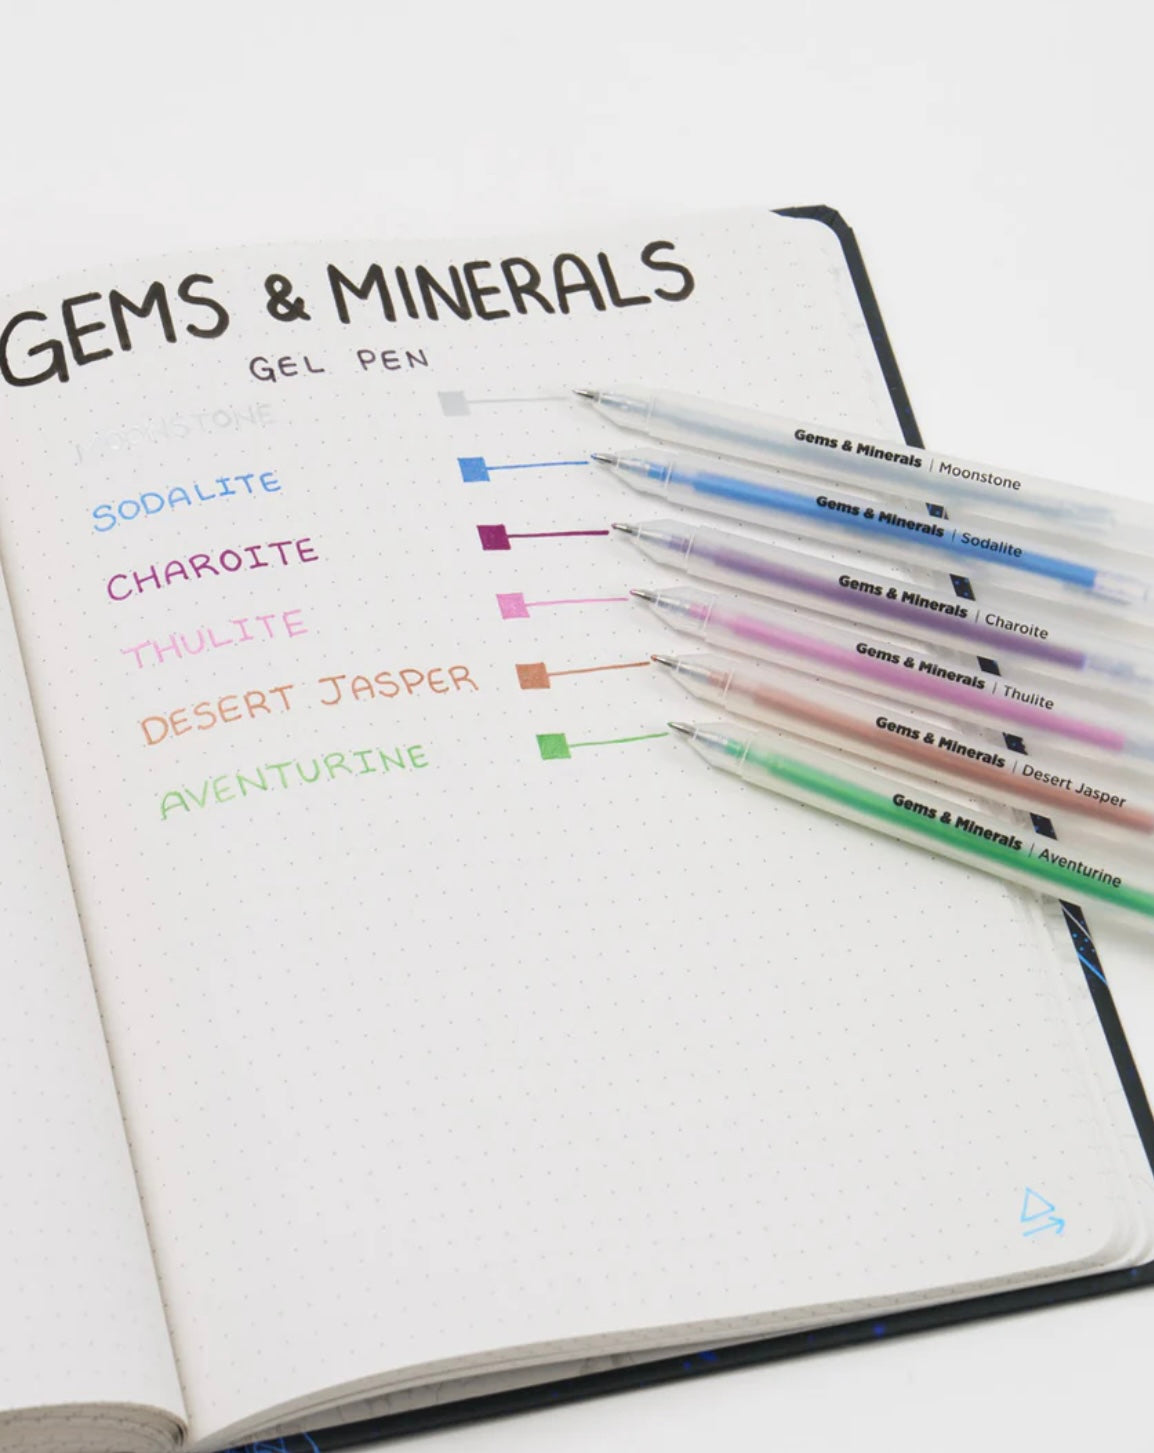 GEMS & MINERALS
GEL PEN
MOONSTONE
SODALITE
CHAROITE
THULITE
DESERT JASPER
AVENTURINE
Gems & Minerals | Moonstone
Gems & Minerals | Sodalite
Gems & Minerals | Charoite
Gems & Minerals | Thulite
Gems & Minerals | Desert Jasper
Gems & Minerals | Aventurine